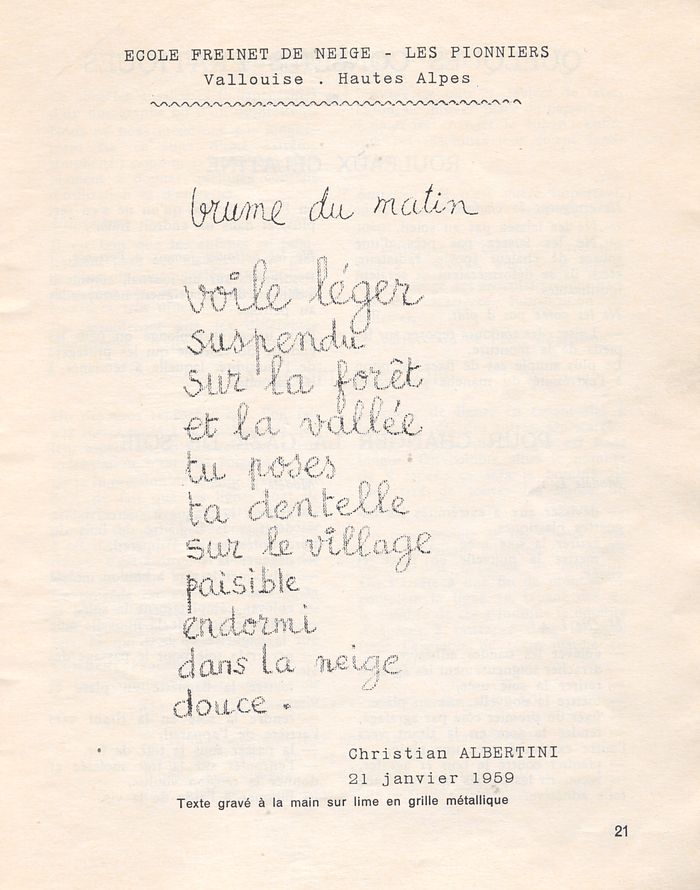 ECOLE FREINET DE NEIGE - LES PIONNIERS
Vallouise . Hautes Alpes
brume du matin
voile léger
suspendu
sur la forêt
et la vallée
tu poses
ta dentelle
sur le village
paisible
endormi
dans la neige
douce.
Christian ALBERTINI
21 janvier 1959
Texte gravé à la main sur lime en grille métallique
21